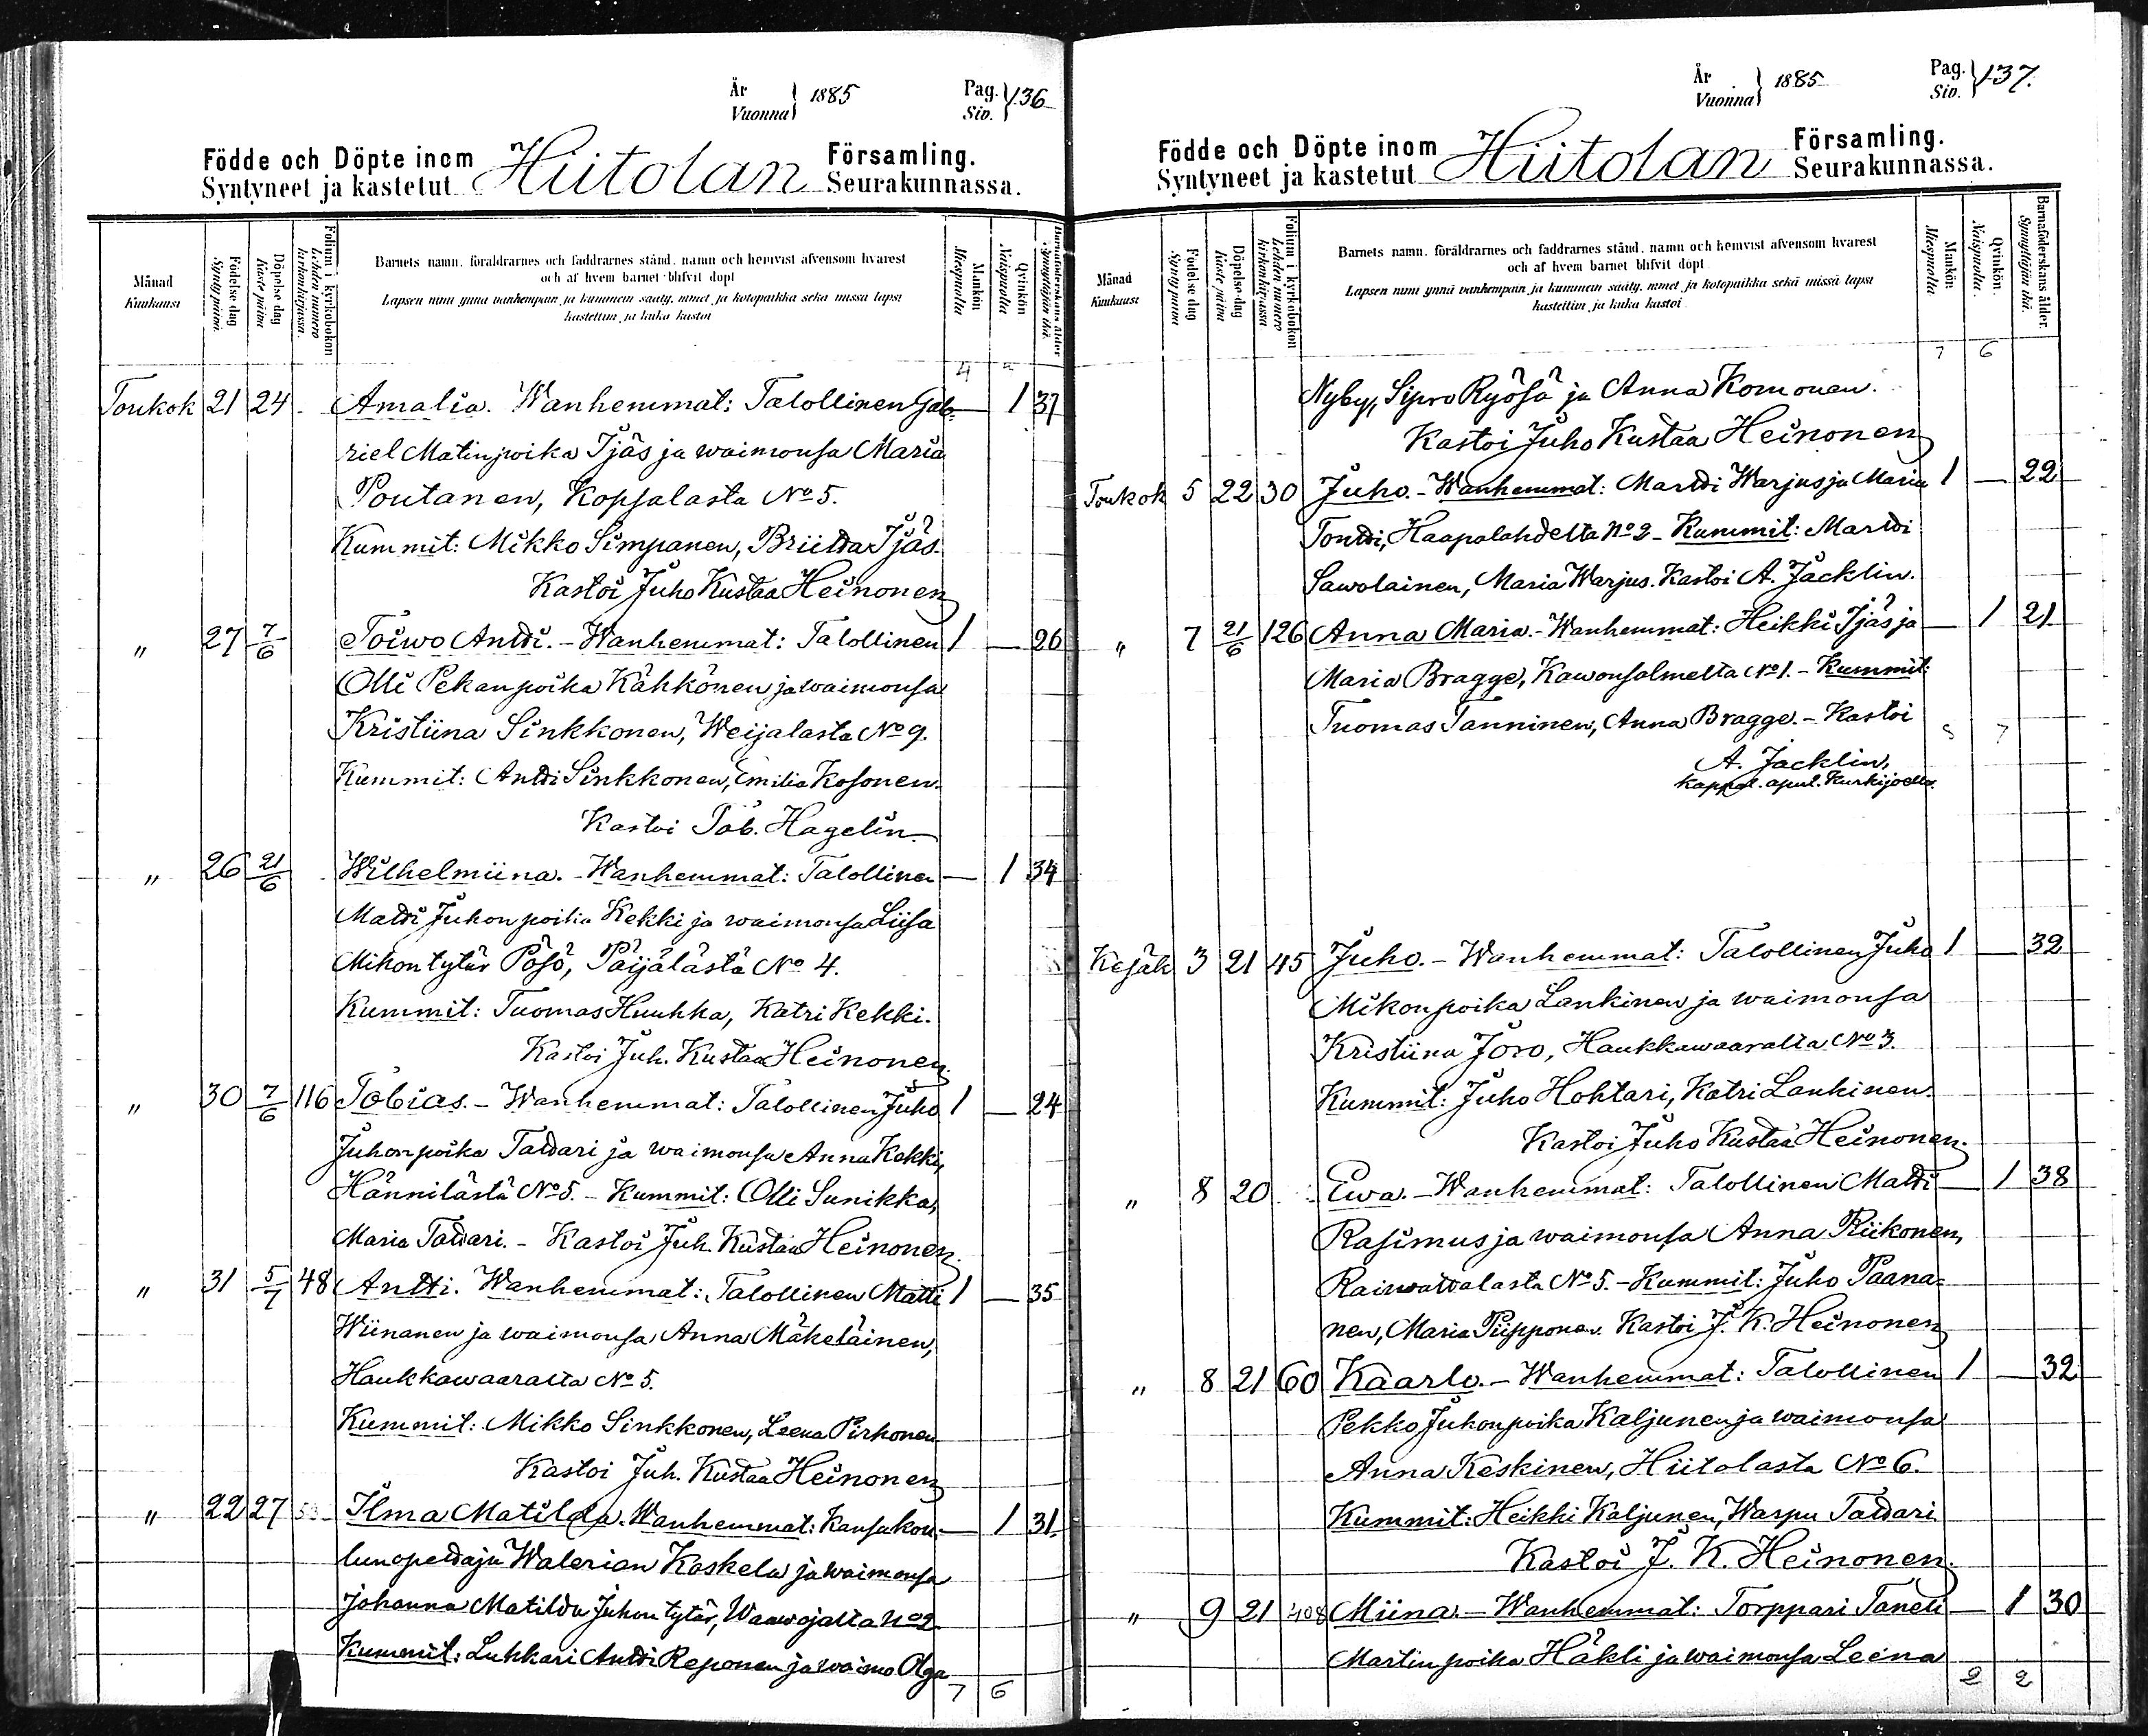 År
Vuonna } 1885 Pag.
Siv. } 136
Födde och Döpte inom Hiitolan Församling.
Syntyneet ja kastetut Seurakunnassa.
Månad
Kuukausi
Födelse dag
Synty päivä.
Döpelse dag
Kaste päivä
Folium i kyrkoboken
Lehden numero
kirkonkirjassa.
Barnets namn, föräldrarnes och faddrarnes stånd, namn och hemvist äfvensom hvarest
och af hvem barnet blifvit döpt
Lapsen nimi ynnä vanhempain ja kummein sääty, nimet ja kotopaikka sekä missä lapsi
kastettiin ja kuka kastoi
Mankön
Miespuolia
Qvinkön
Naispuolia
Barnaföderskans ålder
Synnyttäjän ikä.
4
Toukok 21 24 Amalia. Wanhemmat: Talollinen Gab- — 1 37
riel Matinpoika Ijäs ja waimonsa Maria
Poutanen, Kopsalasta No 5.
Kummit: Mikko Simpanen, Briitta Ijäs.
Kastoi Juho Kustaa Heinonen
" 27 7/6 Toiwo Antti. - Wanhemmat: Talollinen 1 — 26
Olli Pekanpoika Kähkönen ja waimonsa
Kristiina Sinkkonen, Weijalasta No 9.
Kummit: Antti Sinkkonen, Emilia Kosonen.
Kastoi Tob. Hagelin
" 26 21/6 Wilhelmiina. - Wanhemmat: Talollinen — 1 34
Matti Juhonpoika Kekki ja waimonsa Liisa
Mikontytär Pösö, Päijälästä No 4.
Kummit: Tuomas Huuhka, Katri Kekki.
Kastoi Juh. Kustaa Heinonen.
" 30 7/6 116 Tobias. - Wanhemmat: Talollinen Juho 1 — 24
Juhonpoika Tattari ja waimonsa Anna Kekki,
Hännilästä No 5. - Kummit: Olli Sunikka,
Maria Tattari. - Kastoi Juh. Kustaa Heinonen.
" 31 5/7 48 Antti. Wanhemmat: Talollinen Matti 1 — 35
Wiinanen ja waimonsa Anna Mäkeläinen,
Haukkawaaralta No 5.
Kummit: Mikko Sinkkonen, Leena Pirhonen
Kastoi Juh. Kustaa Heinonen
" 22 27 53 Ilma Matilda. Wanhemmat: Kansakou- — 1 31
lunopettaja Walerian Koskela ja waimonsa
Johanna Matilda Juhontytär, Waawojalta No 2.
Kummit: Lukkari Antti Reponen ja waimo Olga
7 6
År
Vuonna } 1885 Pag.
Siv. } 137.
Födde och Döpte inom Hiitolan Församling.
Syntyneet ja kastetut Seurakunnassa.
Månad
Kuukausi
Födelse dag
Synty päivä
Döpelse dag
Kaste päivä
Folium i kyrkoboken
Lehden numero
kirkonkirjassa
Barnets namn, föräldrarnes och faddrarnes stånd, namn och hemvist äfvensom hvarest
och af hvem barnet blifvit döpt
Lapsen nimi ynnä vanhempain ja kummein sääty, nimet ja kotopaikka sekä missä lapsi
kastettiin ja kuka kastoi
Mankön
Miespuolia
Qvinkön
Naispuolia.
Barnaföderskans ålder.
Synnyttäjän ikä.
7 6
Nyby, Sipro Ryösä ja Anna Komonen.
Kastoi Juho Kustaa Heinonen
Toukok 5 22 30 Juho. - Wanhemmat: Martti Warjus ja Maria 1 — 22
Tontti, Haapalahdelta No 2 - Kummit: Martti
Sawolainen, Maria Warjus. Kastoi A. Jacklin.
" 7 21/6 126 Anna Maria. - Wanhemmat: Heikki Ijäs ja — 1 21
Maria Bragge, Kawonsalmelta No 1. - Kummit:
Tuomas Tanninen, Anna Bragge. - Kastoi
8 7
A. Jacklin,
kappal. apul. Kurkijoelta.
Kesäk 3 21 45 Juho. - Wanhemmat: Talollinen Juho 1 — 32
Mikonpoika Lankinen ja waimonsa
Kristiina Joro, Haukkawaaralta No 3.
Kummit: Juho Hohtari, Katri Lankinen.
Kastoi Juho Kustaa Heinonen.
" 8 20 Ewa. - Wanhemmat: Talollinen Matti — 1 38
Rasimus ja waimonsa Anna Riikonen,
Raiwattalasta No 5. - Kummit: Juho Paana-
nen, Maria Piipponen. Kastoi J. K. Heinonen
" 8 21 60 Kaarlo. - Wanhemmat: Talollinen 1 — 32
Pekko Juhonpoika Kaljunen ja waimonsa
Anna Keskinen, Hiitolasta No 6.
Kummit: Heikki Kaljunen, Warpu Tattari
Kastoi J. K. Heinonen.
" 9 21 408 Miina. - Wanhemmat: Torppari Taneli — 1 30
Martinpoika Häkli ja waimonsa Leena
2 2